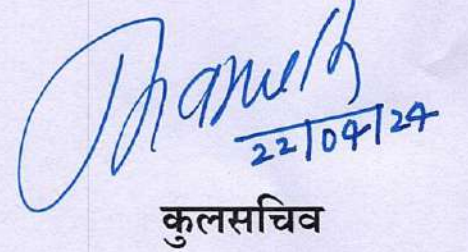 22/04/24
कुलसचिव